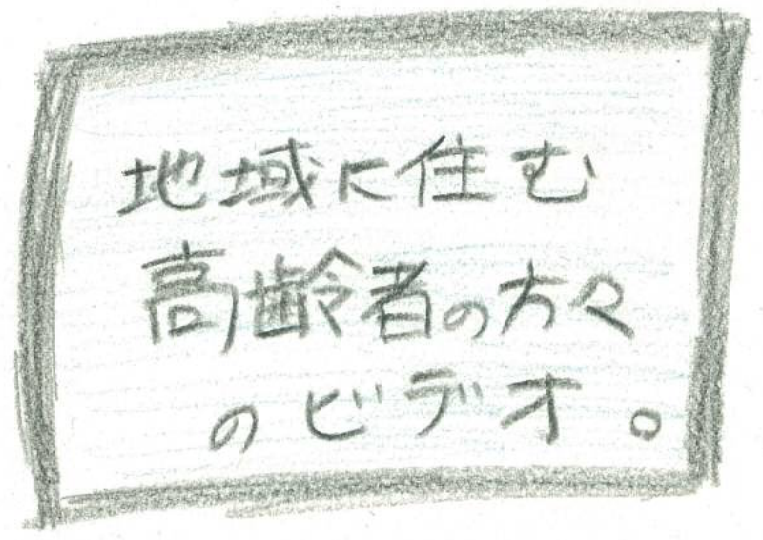 地域に住む
高齢者の方々
のビデオ。